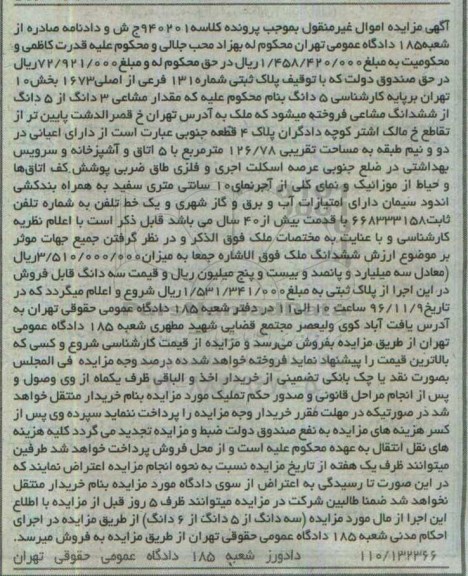 آگهی مزایده اموال غیرمنقول بموجب پرونده کلاسه۹۴۰۲۰۱ج ش و دادنامه صادره از
شعبه۱۸۵ دادگاه عمومی تهران محکوم له بهزاد محب جلالی و محکوم علیه قدرت کاظمی و
محکومیت به مبلغ۱/۴۵۸/۴۲۰/۰۰۰ریال در حق محکوم له و مبلغ۷۲/۹۲۱/۰۰۰ریال
در حق صندوق دولت که با توقیف پلاک ثبتی شماره۱۳۱ فرعی از اصلی۱۶۷۳ بخش۱۰
تهران برپایه کارشناسی ۵ دانگ بنام محکوم علیه که مقدار مشاعی ۳ دانگ از ۵ دانگ
از ششدانگ مشاعی فروخته میشود که ملک به آدرس تهران خ قصرالدشت پایین تر از
تقاطع خ مالک اشتر کوچه دادگران پلاک ۴ قطعه جنوبی عبارت است از دارای اعیانی در
دو و نیم طبقه به مساحت تقریبی ۱۲۶/۷۸ مترمربع با ۵ اتاق و آشپزخانه و سرویس
بهداشتی در ضلع جنوبی عرصه اسکلت اجری و فلزی طاق ضربی پوشش کف اتاق‌ها
و حیاط از موزائیک و نمای کلی از آجرنمای۱۰ سانتی متری سفید به همراه بندکشی
اندود سیمان دارای امتیازات آب و برق و گاز شهری و یک خط تلفن به شماره تلفن
ثابت۶۶۸۳۳۳۱۵۸ با قدمت بیش از۴۰ سال می باشد قابل ذکر است با اعلام نظریه
کارشناسی و با عنایت به مختصات ملک فوق الذکر و در نظر گرفتن جمیع جهات موثر
بر موضوع ارزش ششدانگ ملک فوق الاشاره جمعا به میزان۳/۵۱۰/۰۰۰/۰۰۰ریال
(معادل سه میلیارد و پانصد و بیست و پنج میلیون ریال و قیمت سه دانگ قابل فروش
در این اجرا از پلاک ثبتی به مبلغ۱/۵۳۱/۳۴۱/۰۰۰ریال شروع و اعلام میگردد که در
تاریخ۹۶/۱۱/۹ ساعت ۱۰ الی۱۱ در دفتر شعبه ۱۸۵ دادگاه عمومی حقوقی تهران به
آدرس یافت آباد کوی ولیعصر مجتمع قضایی شهید مطهری شعبه ۱۸۵ دادگاه عمومی
تهران از طریق مزایده بفروش می‌رسد و مزایده از قیمت کارشناسی شروع و کسی که
بالاترین قیمت را پیشنهاد نماید فروخته خواهد شد ده درصد وجه مزایده فی المجلس
بصورت نقد یا چک بانکی تضمینی از خریدار اخذ و الباقی ظرف یکماه از وی وصول و
پس از انجام مراحل قانونی و صدور حکم تملیک مورد مزایده بنام خریدار منتقل خواهد
شد در صورتیکه در مهلت مقرر خریدار وجه مزایده را پرداخت ننماید سپرده وی پس از
کسر هزینه های مزایده به نفع صندوق دولت ضبط و مزایده تجدید می گردد کلیه هزینه
های نقل انتقال به عهده محکوم علیه است و از محل فروش پرداخت خواهد شد طرفین
میتوانند ظرف یک هفته از تاریخ مزایده نسبت به نحوه انجام مزایده اعتراض نمایند که
در این صورت تا رسیدگی به اعتراض از سوی دادگاه مورد مزایده بنام خریدار منتقل
نخواهد شد ضمنا طالبین شرکت در مزایده میتوانند ظرف ۵ روز قبل از مزایده با اطلاع
این اجرا از مال مورد مزایده (سه دانگ از ۵ دانگ از ۶ دانگ) از طریق مزایده در اجرای
احکام مدنی شعبه ۱۸۵ دادگاه عمومی حقوقی تهران از طریق مزایده به فروش میرسد.
۱۱۰/۱۳۲۳۶۶ دادورز شعبه ۱۸۵ دادگاه عمومی حقوقی تهران